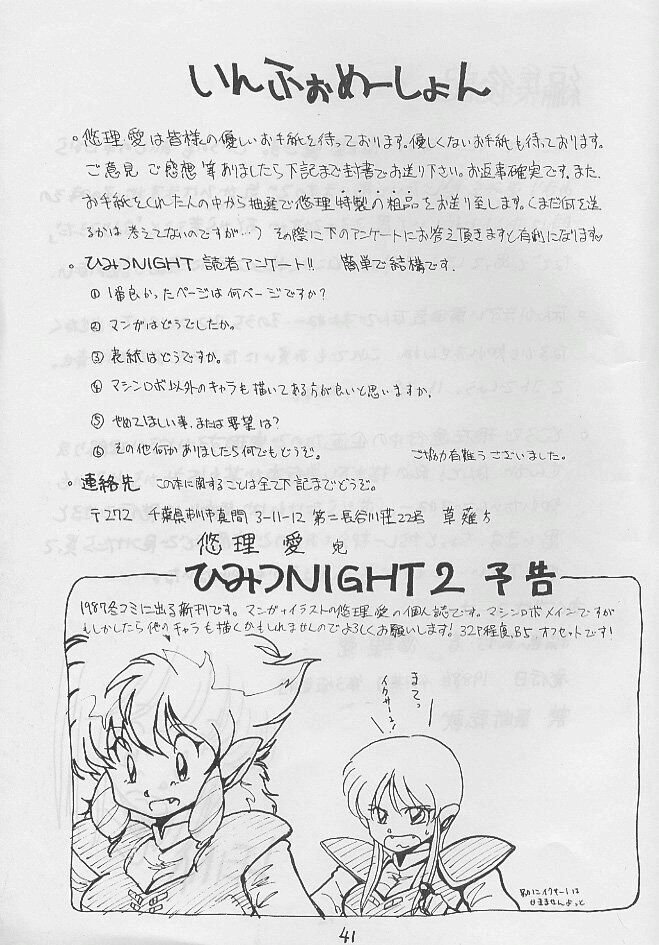 いんふぉめーしょん
。悠理愛は皆様の優しいお手紙を待っております。優しくないお手紙も待っております。
ご意見 ご感想 等ありましたら下記まで封書でお送り下さい。お返事確実です。また、
お手紙をくれた人の中から抽選で悠理特製の粗品をお送り致します。(まだ何を送
るかは考えてないのですが…) その際に下のアンケートにお答え頂きますと有利になります
。ひみつNIGHT 読者アンケート!! 簡単で結構です.
① 1番良かったページは何ページですか?
② マンガはどうでしたか。
③ 表紙はどうですか。
④ マシンロボ以外のキャラも描いてある方が良いと思いますか.
⑤ やめてほしい事、または要望は?
⑥ その他何かありましたら何でもどうぞ。 ご協力有難うございました。
。連絡先 この本に関することは全て下記までどうぞ。
〒272 千葉県市川市真間3-11-12 第二長谷川荘22号 草薙方
悠理愛 宛
ひみつNIGHT2 予告
1987冬コミに出る新刊です。マンガ・イラストの悠理愛の個人誌です。マシンロボメインですが
もしかしたら他のキャラも描くかもしれませんのでよろしくお願いします! 32P程度.B5 オフセットです!
まてっ
イクサー1!
41